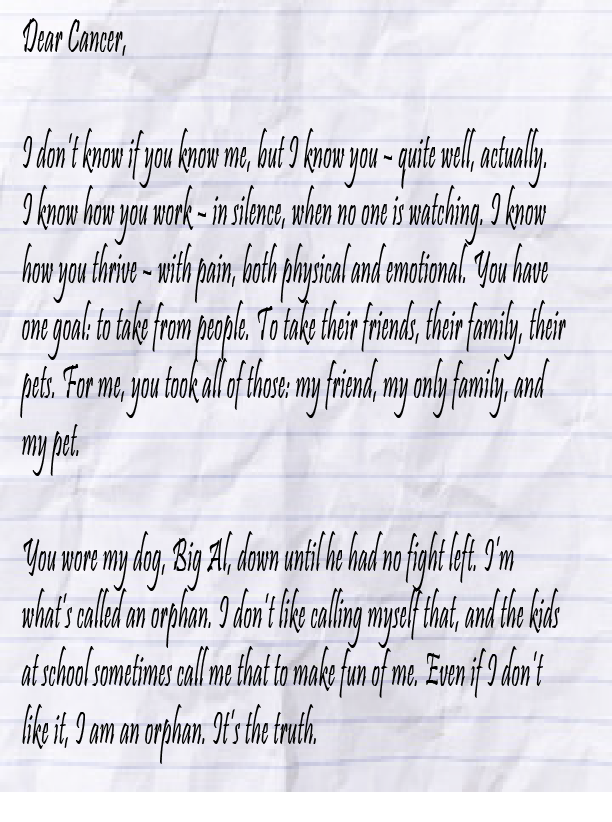 Dear Cancer,
I don't know if you know me, but I know you ~ quite well, actually.
I know how you work ~ in silence, when no one is watching. I know
how you thrive ~ with pain, both physical and emotional. You have
one goal: to take from people. To take their friends, their family, their
pets. For me, you took all of those: my friend, my only family, and
my pet.
You wore my dog, Big Al, down until he had no fight left. I'm
what's called an orphan. I don't like calling myself that, and the kids
at school sometimes call me that to make fun of me. Even if I don't
like it, I am an orphan. It's the truth.